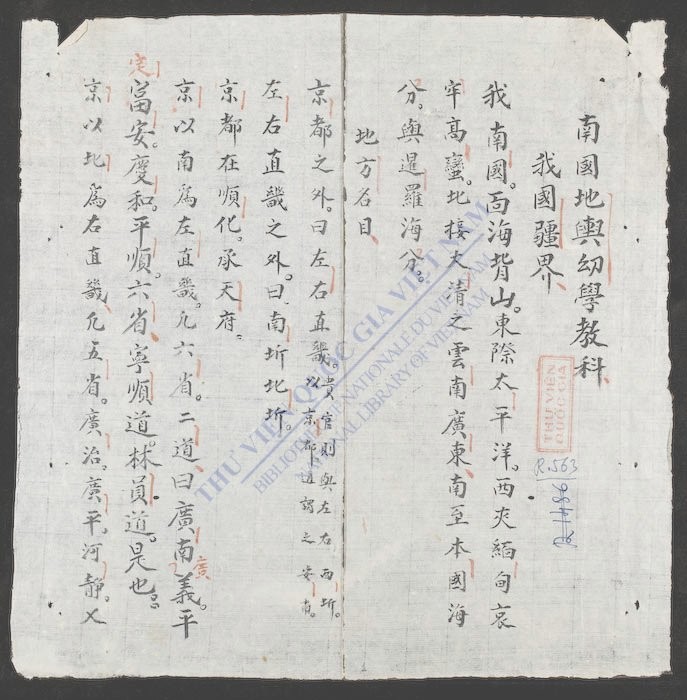 南國地輿幼學教科
我國疆界
我南國。面海背山。東際太平洋。西夾緬甸哀
牢高蠻。北接大清之雲南廣東、南至本國海
分。與暹羅海分。
地方名目
京都之外。曰左右直畿。
貴官則與左右西圻。
以京都通謂之
左右直畿之外。曰南圻北圻。
京都在順化。承天府。
京以南爲左直畿。凡六省。二道曰廣南廣義。平
定富安。慶和。平順。六省寧順道。林員道。是也。
京以北爲右直畿。凡五省。廣治。廣平。河靜。乂
THƯ VIỆN
QUỐC GIA
R.563
THƯ VIỆN QUỐC GIA VIỆT NAM
BIBLIOTHÈQUE NATIONALE DU VIETNAM
NATIONAL LIBRARY OF VIETNAM